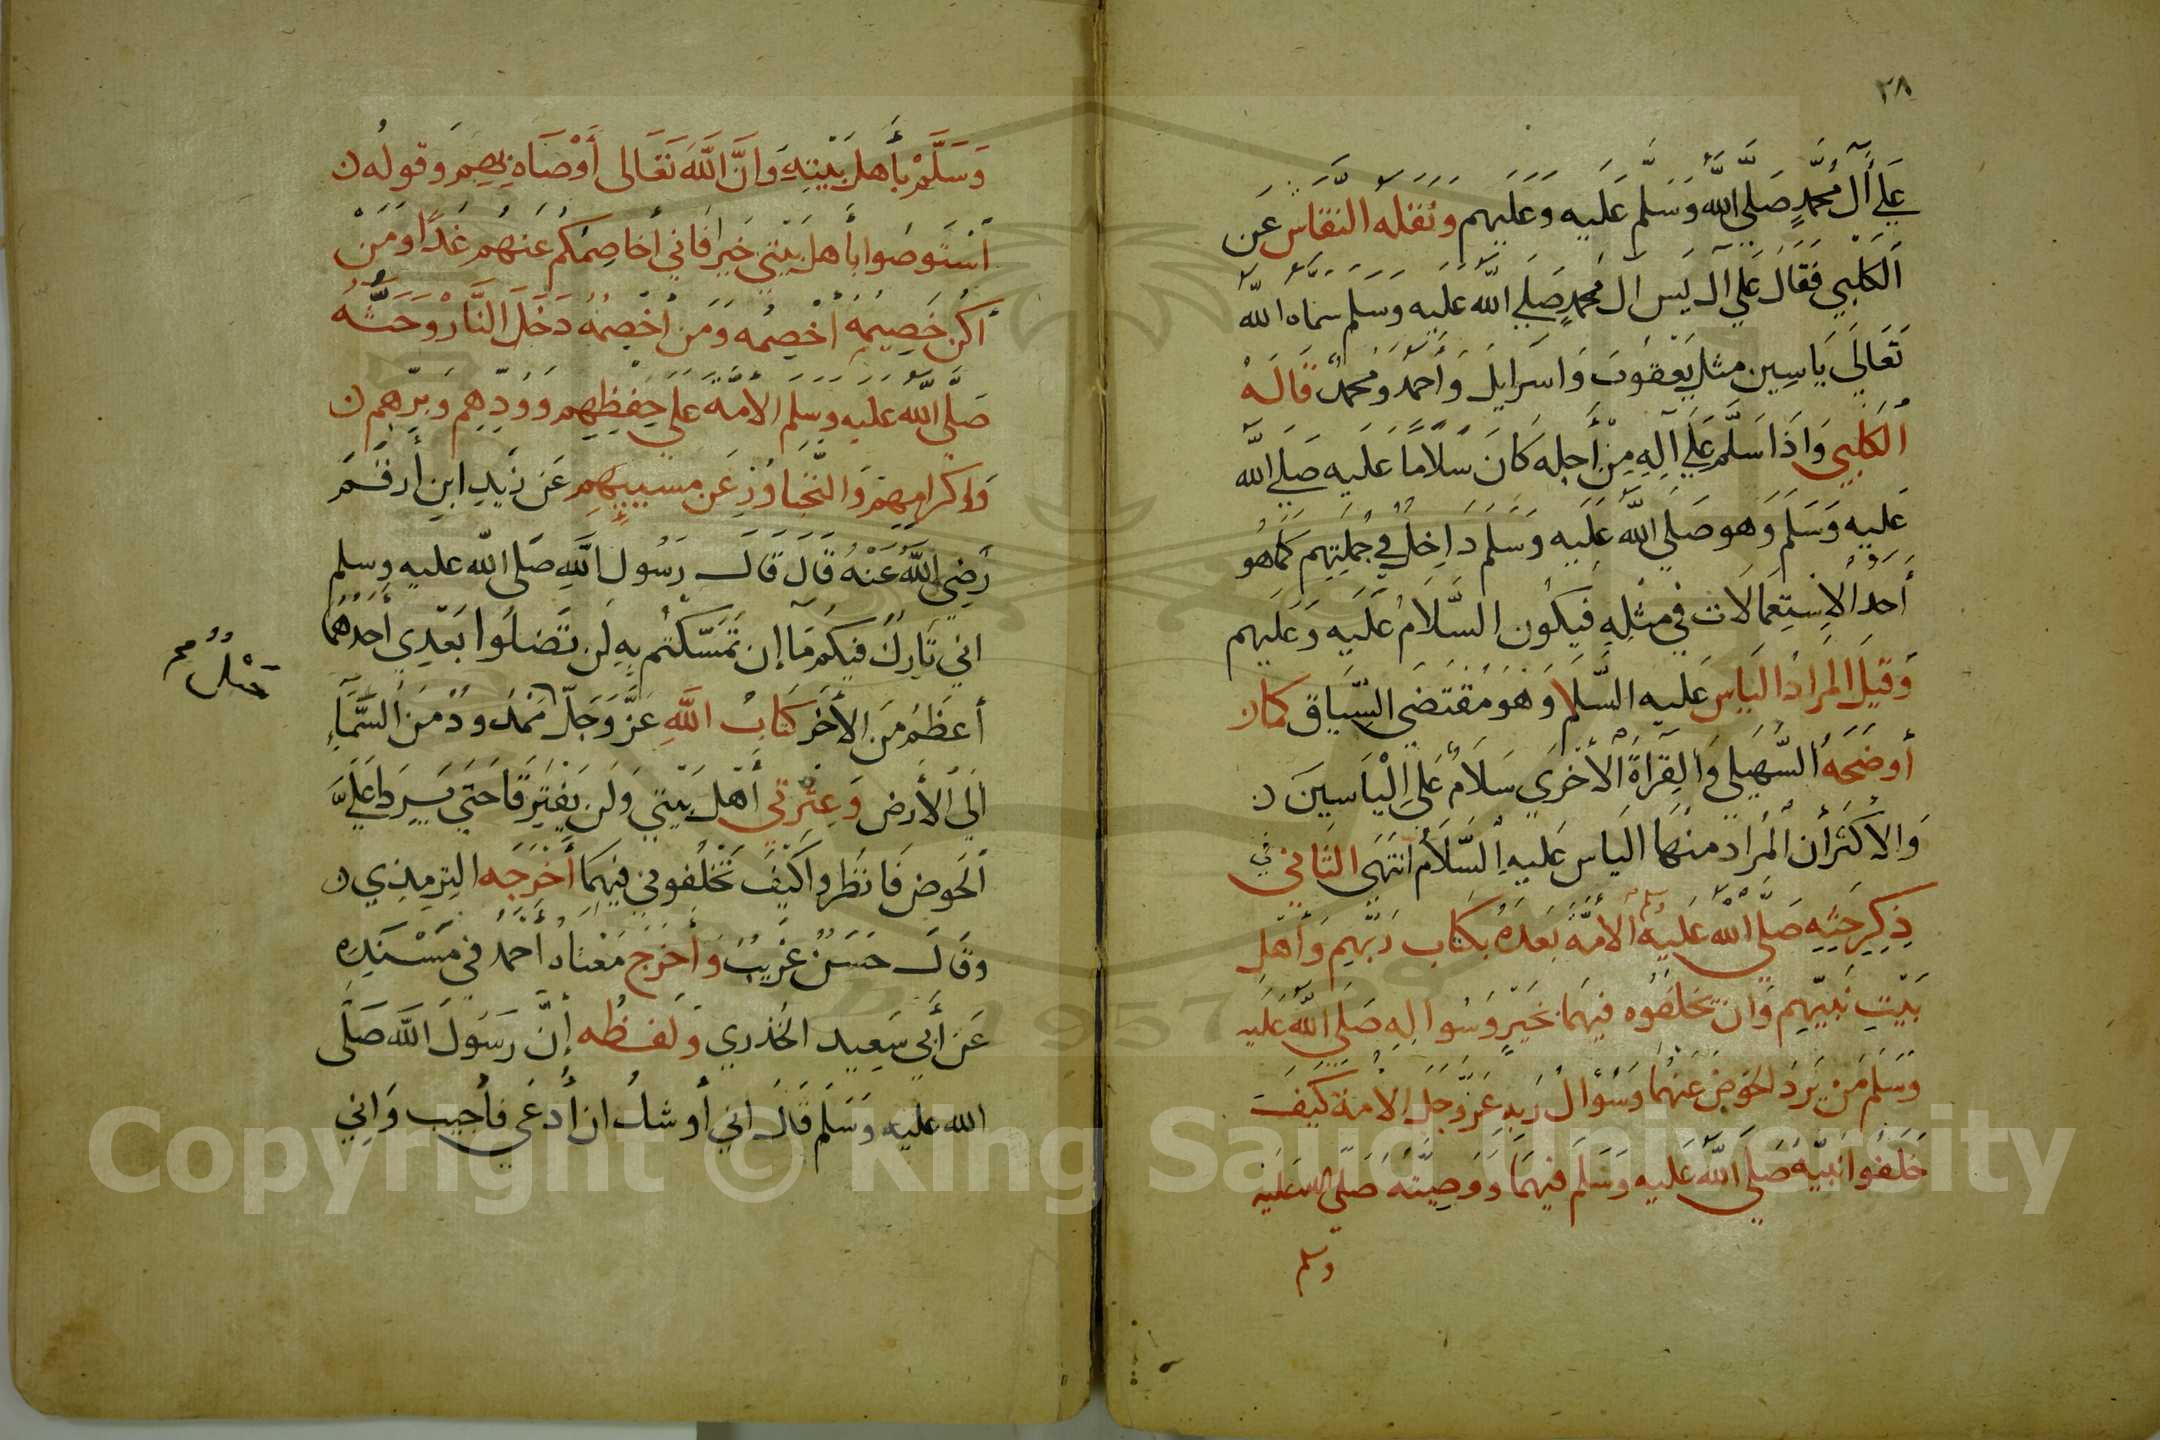 ٢٨
عَلَى آلِ مُحَمَّدٍ صَلَّى اللَّهُ وَسَلَّمَ عَلَيه وَعَلَيهم وَنَقَلَهُ النقَّاسُ عَن
الكَلْبِي فَقَالَ عَلَي آلِ يَس آلِ مُحَمَّدٍ صَلَى الله عَلَيه وَسَلم سَمَاهُ الله
تَعَالَى يَاسِين مثل يَعْقُوبَ وَاسرَايلَ وَأَحمَدُ وَمُحَمَّدٌ قَالَهُ
الكَلْبِي وَاذَا سَلَّمَ عَلَى آلِهِ مِنْ أَجلِه كَانَ سَلَامًا عَلَيه صَلَى الله
عَلَيه وَسَلَمَ وَهو صَلى اللَّهُ عَلَيه وَسَلمَ دَاخِلٌ في جُملَتِهِم كَمَا هُو
أَحَدُ الاِسْتِعمَالَات في مثلِهِ فَيَكُون السَّلَامُ عَلَيه وَعَلَيهم
وَقيلَ المرَادُ الَيَاس عَليه السَّلَام وَهوَ مُقتَضَى السِّيَاق كمَا ن
أوضَحَهُ السُّهَيلي وَالقِرَاةَ الأخرَي سَلَامٌ عَلَى الْيَاسِينَ ن
وَالاكثَر أن المرَادَ منهَا اليَاس عَليهِ السَّلَام انتَهَى الثَاني في
ذِكِر حَثِّهِ صَلَّى اللَّه عَلَيه وسلم الأمّة بَعدَهُ بكتَاب رَبّهِم وَأَهلِ
بَيْتِ نَبيّهِم وَان يَخلفُوه فيهمَا بخَيرٍ وَسُوالِهِ صَلَى اللَّهُ عَليه
وَسَلمَ مَن يَرِدُ الحَوضَ عَنهُمَا وَسُؤَالُ رَبِهِ عَزَّ وَجَلَ الأمّة كَيفَ
خَلَفُوا نَبيَّهُ صَلَى اللَّهُ عَليه وَسَلمَ فيهمَا وَوَصيّته صَلى الله عَليه
وسلم
وَسَلَّمَ بأَهلِ بَيْتهِ وَانَّ اللَّهَ تَعَالى أَوْصَاهُ بهِم وَقولُه ن
استَوصُوا بأَهلِ بَيْتي خَيرًا فَاني أخاصِمُكُم عَنهُم غَدًا وَمَنْ
أكُن خَصِيمُهُ أخْصِمُه وَمَن أخصِمُهُ دَخَلَ النَّار وَحَثِّهُ
صَلَّى اللَّهُ عَليه وسلم الأمّة عَلي حِفظِهِم وَوُدِّهِم وَبرّهِم ن
وَاكرَامِهِم وَالتَّجَاوُزِ عَن مسيئِهِم عَن زَيدِ ابنِ أَرقَمَ
رَضي اللَّهُ عَنهُ قَالَ قَالَ رَسُول اللَّهِ صَلى الله عليه وسلم
اني تَارِكٌ فيكُم مَا إن تَمَسَّكْتُم بِهِ لَن تَضلُوا بَعدِي أَحَدُهُمَا
أعظَمُ مِنَ الأَخَرِ كتَابُ اللَّهِ عَزَّ وَجَلّ مَمْدُودٌ مِنَ السَّمَآءِ
حَبْلٌ صح
الَى الأَرض وَعِترَتي أَهلُ بَيتي وَلَن يَفترِقَا حَتى يَرِدَا عَلَيَّ
الحَوضَ فَانظُروا كَيْفَ تَخلفُوني فيهِمَا أَخرَجَه الترِمِذي ن
وقَالَ حَسَنٌ غَرِيبٌ وَأَخرَجَ مَعْنَاهُ أَحمَدُ في مسنَدِه
عَن أَبي سَعيد الخُدري وَلَفظُه إنَّ رَسُولَ اللَّه صَلَّى
الله عليه وَسَلَم قَالَ اني أُوشكُ ان أُدعَى فأجيب وَاني
Copyright © King Saud University
1957